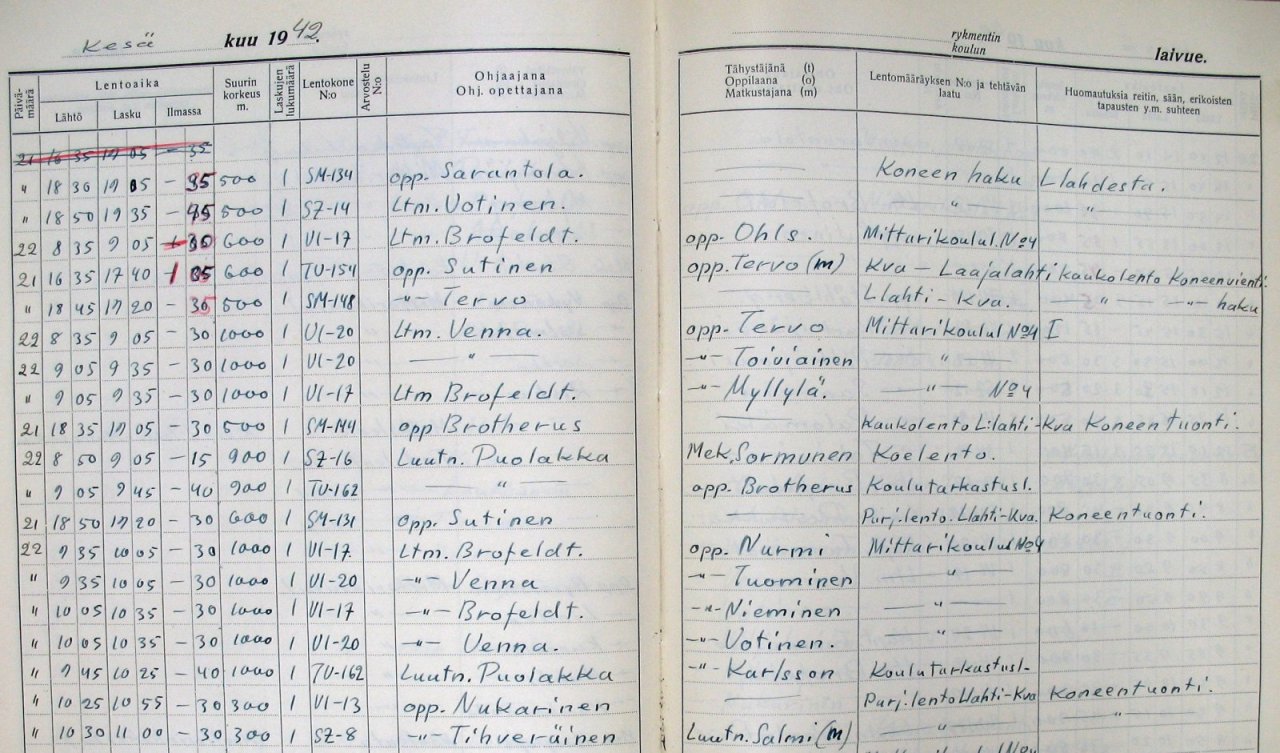 Kesä kuu 1942. rykmentin koulun laivue.
Päivämäärä Lentoaika Lähtö Lasku Ilmassa Suurin korkeus m. Laskujen lukumäärä Lentokone N:o Arvostelu N:o Ohjaajana Ohj. opettajana Tähystäjänä (t) Oppilaana (o) Matkustajana (m) Lentomääräyksen N:o ja tehtävän laatu Huomautuksia reitin, sään, erikoisten tapausten y.m. suhteen
21 16 35 17 05 — 35
" 18 30 19 05 — 35 500 1 SM-134 opp. Sarantola. — Koneen haku Llahdesta.
" 18 50 19 35 — 45 500 1 SZ-14 Ltm. Votinen. — " — — " —
22 8 35 9 05 — 30 600 1 VI-17 Ltm. Brofeldt. opp. Ohls. Mittarikoulul. No4
21 16 35 17 40 1 05 600 1 TU-154 opp. Sutinen opp. Tervo (m) Kva — Laajalahti kaukolento Koneenvienti.
" 18 45 19 20 — 35 500 1 SM-148 -"- Tervo — Llahti - Kva. — " — -"- haku
22 8 35 9 05 — 30 1000 1 VI-20 Ltm. Venna. opp. Tervo Mittarikoulul No4 I
22 9 05 9 35 — 30 1000 1 VI-20 — " — -"- Toiviainen — " —
" 9 05 9 35 — 30 1000 1 VI-17 Ltm Brofeldt. -"- Myllylä. — " — No4
21 18 35 19 05 — 30 500 1 SM-144 opp Brotherus — Kaukolento L:lahti-Kva Koneentuonti.
22 8 50 9 05 — 15 900 1 SZ-16 Luutn. Puolakka Mek. Sormunen Koelento.
" 9 05 9 45 — 40 900 1 TU-162 — " — opp. Brotherus Koulutarkastusl.
21 18 50 19 20 — 30 600 1 SM-131 opp. Sutinen — Purj.lento. Llahti-Kva. Koneentuonti.
22 9 35 10 05 — 30 1000 1 VI-17 Ltm. Brofeldt. opp. Nurmi Mittarikoulul No4
" 9 35 10 05 — 30 1000 1 VI-20 -"- Venna -"- Tuominen — " —
" 10 05 10 35 — 30 1000 1 VI-17 -"- Brofeldt. -"- Nieminen — " —
" 10 05 10 35 — 30 1000 1 VI-20 -"- Venna. -"- Votinen. — " —
" 9 45 10 25 — 40 1000 1 TU-162 Luutn. Puolakka -"- Karlsson Koulutarkastusl-
" 10 25 10 55 — 30 300 1 VI-13 opp. Nukarinen — Purj.lento Llahti-Kva Koneentuonti.
" 10 30 11 00 — 30 300 1 SZ-8 -"- Tihveräinen Luutn. Salmi (m) — " — — " —